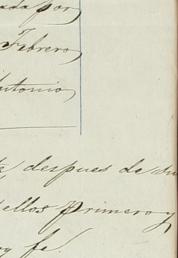 ada por
Febrero
Antonio
despues de su
ellos primero y
fe.